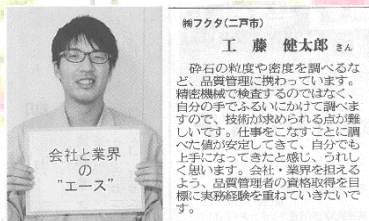 会社と業界
の
"エース"
㈱フクタ(二戸市)
工藤健太郎さん
砕石の粒度や密度を調べるな
ど、品質管理に携わっています。
精密機械で検査するのではなく、
自分の手でふるいにかけて調べま
すので、技術が求められる点が難
しいです。仕事をこなすごとに調
べた値が安定してきて、自分でも
上手になってきたと感じ、うれし
く思います。会社・業界を担える
よう、品質管理者の資格取得を目
標に実務経験を重ねていきたいで
す。